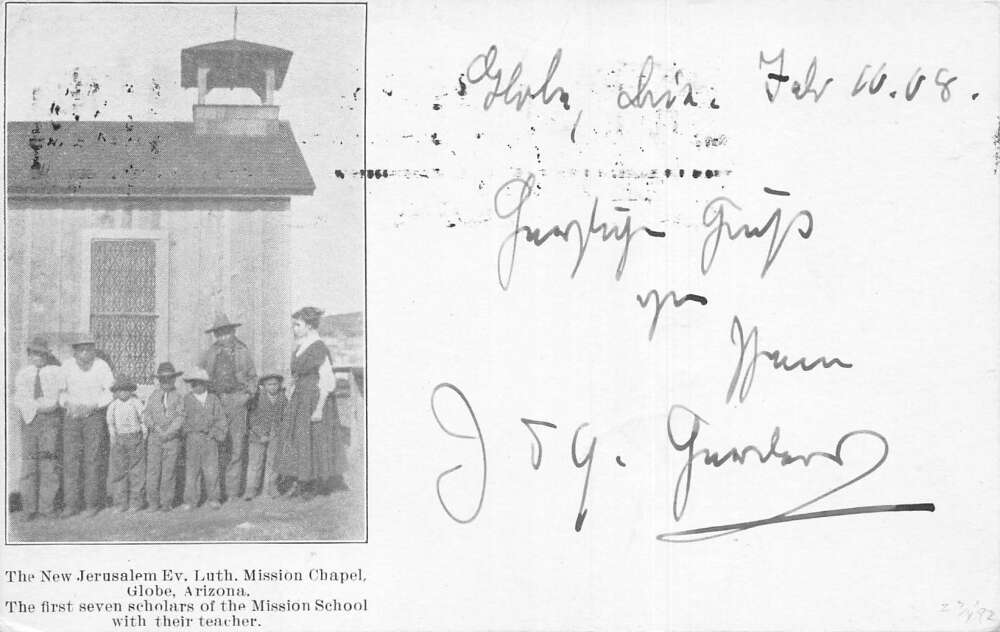 Globe, Ariz. Feb 10.08.
Herzliche Gruß
von
Ihren
J & G. Harders
The New Jerusalem Ev. Luth. Mission Chapel,
Globe, Arizona.
The first seven scholars of the Mission School
with their teacher.